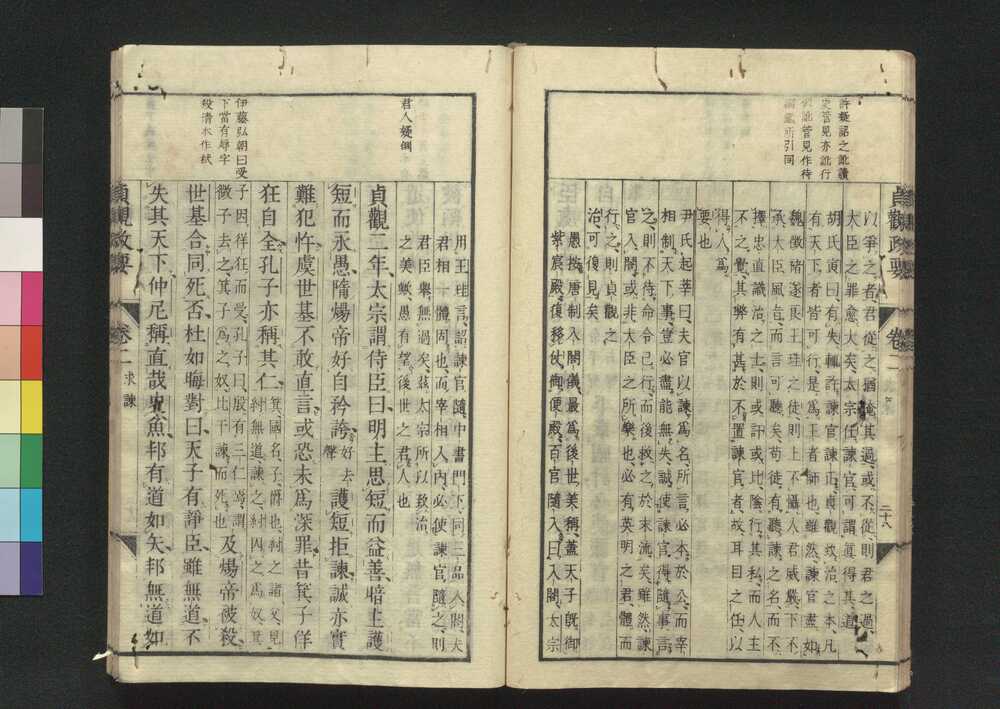 許疑詔之訛續
史管見亦訛行
訛管見作待
所引同
貞觀政要
卷二
二十八
以爭之者君從之猶掩其過或不從則君之過
大臣之罪愈大矣太宗任諫官可謂眞得其道
胡氏寅曰有失輒許諫官諫正貞觀致治之本凡
有天下者皆可行是爲王者師也雖然諫官盡如
魏徵褚遂良王珪之徒則上不懾人君威嚴下不
承大臣風旨而言可聽矣苟徒有聽諫之名而不
擇忠直識治之士則或訐或比陰行其私而人主
不之覺其弊有甚於不置諫官者故耳目之任以
得人爲
要也
尹氏起莘曰夫官以諫爲名所言必本於公而宰
相制天下事豈必盡能無失誠使諫官得隨事言
之則不待命令已行而後救之於末流矣雖然諫
官入閤或非大臣之所樂也必有英明之君體而
行之則貞觀之
治可復見矣
愚按唐制入閤儀最爲後世美稱蓋天子既御
紫宸殿復移仗御便殿百官隨入入曰入閤太宗
用王珪言詔諫官隨中書門下同三品入閤夫
君相一體周也而宰相入內必使諫官隨之則
君臣擧無過矣玆太宗所以致治
之美歟愚有望後世之君人也
君人疑倒
貞觀二年太宗謂侍臣曰明主思短而益善暗主護
短而永愚隋煬帝好自矜誇好去聲護短拒諫誠亦實
難犯忤虞世基不敢直言或恐未爲深罪昔箕子佯
狂自全孔子亦稱其仁箕國名子爵也紂之諸父見紂無道諫之紂囚之爲奴箕
子因佯狂而受孔子曰殷有三仁焉謂微子去之箕子爲之奴比干諫而死也及煬帝被殺
世基合同死否杜如晦對曰天子有諍臣雖無道不
失其天下仲尼稱直哉史魚邦有道如矢邦無道如
伊藤弘朝曰受
下當有辱字
殺清本作弑
貞觀政要
卷二
求諫